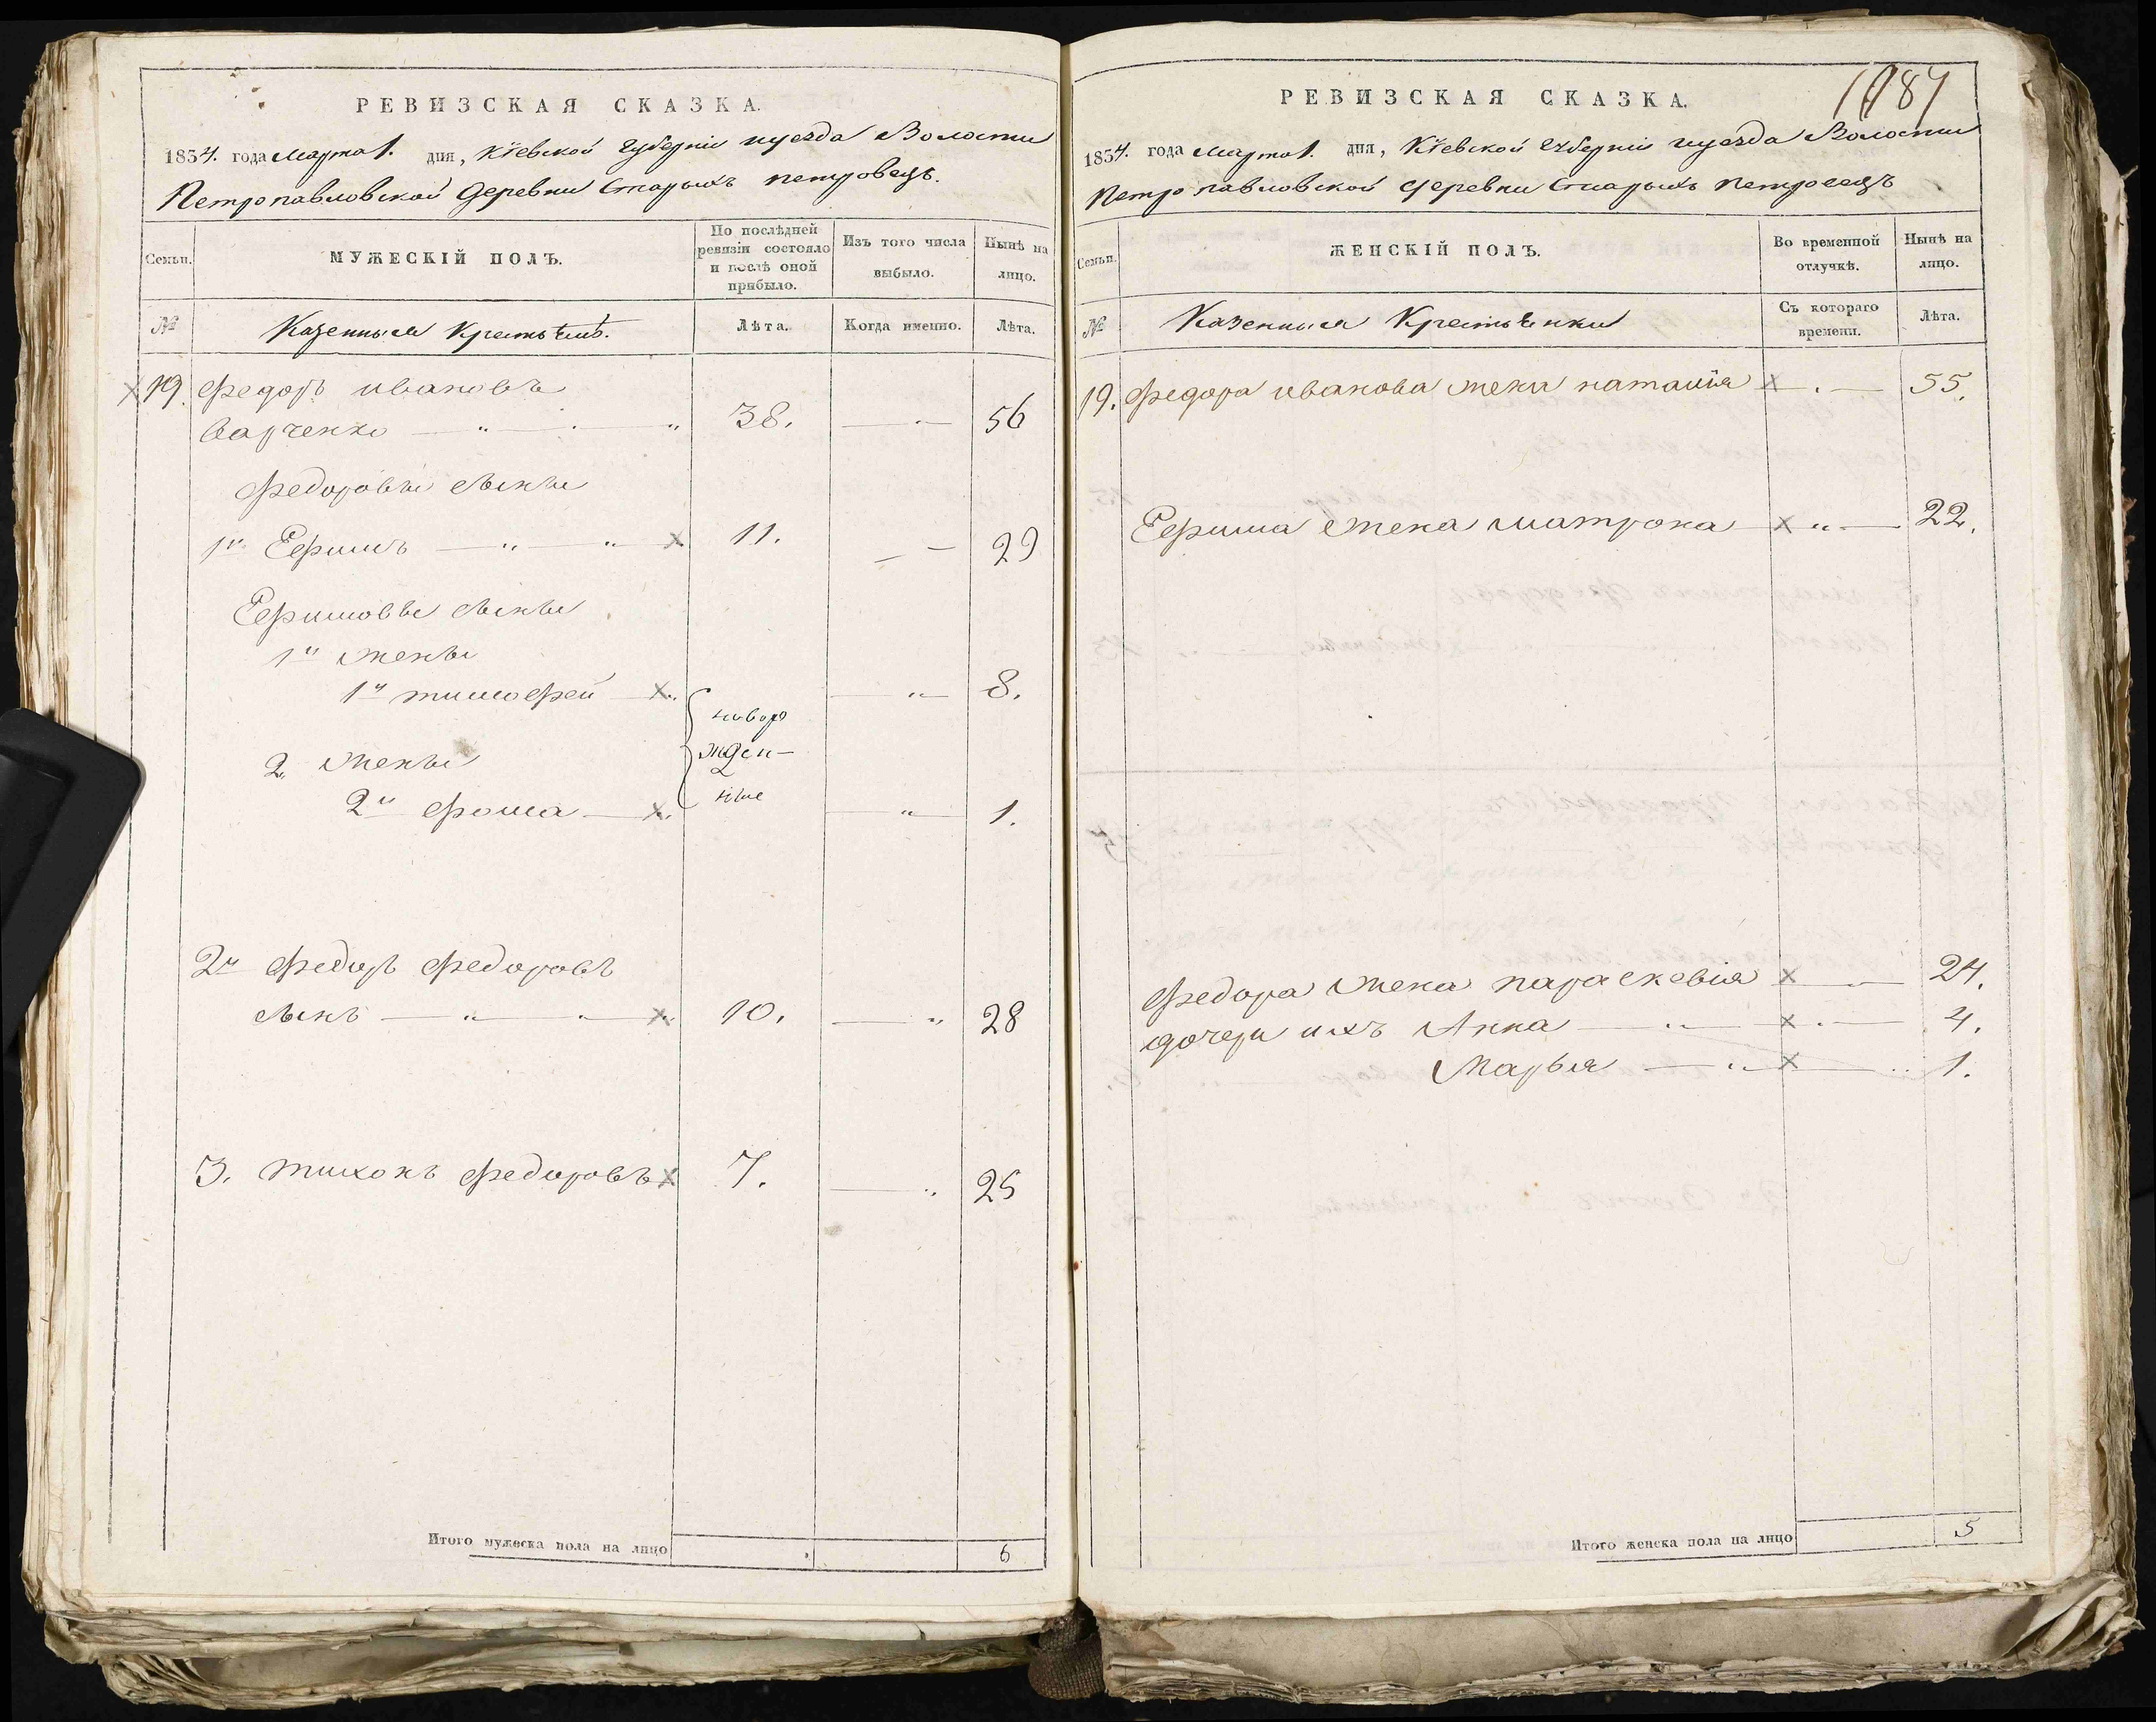 РЕВИЗСКАЯ СКАЗКА.
1854. года Марта 1. дня, Кіевской Губерніи и уезда Волости
Петропавловской Деревни Старыхъ петровецъ.
Семьи.
МУЖЕСКІЙ ПОЛЪ.
По послѣдней ревизіи состояло и послѣ оной прибыло.
Изъ того числа выбыло.
Нынѣ на лицо.
№
Казенныя Крестьяне.
Лѣта.
Когда именно.
Лѣта.
19. Федоръ ивановъ
Варченко 38. 56
Федоровы сыны
1й Ефимъ 11. 29
Ефимовы сыны
1й жены
1й тимофей 8.
2й жены
новоро
жден-
ные
2й фома 1.
2й Федоръ Федоровъ
сынъ 10. 28
3. тихонъ Федоровъ 7. 25
Итого мужеска пола на лицо 6
1187
РЕВИЗСКАЯ СКАЗКА.
1854. года Марта 1. дня, Кіевской Губерніи и уезда Волости
Петропавловской деревни Старыхъ Петровецъ
Семьи.
ЖЕНСКІЙ ПОЛЪ.
Во временной отлучкѣ.
Нынѣ на лицо.
№
Казенныя Крестьянки
Съ котораго времени.
Лѣта.
19. Федора иванова жена наталія 55.
Ефима жена матрона 22.
Федора жена параскевія 24.
дочери ихъ Анна 4.
Марья 1.
Итого женска пола на лицо 5